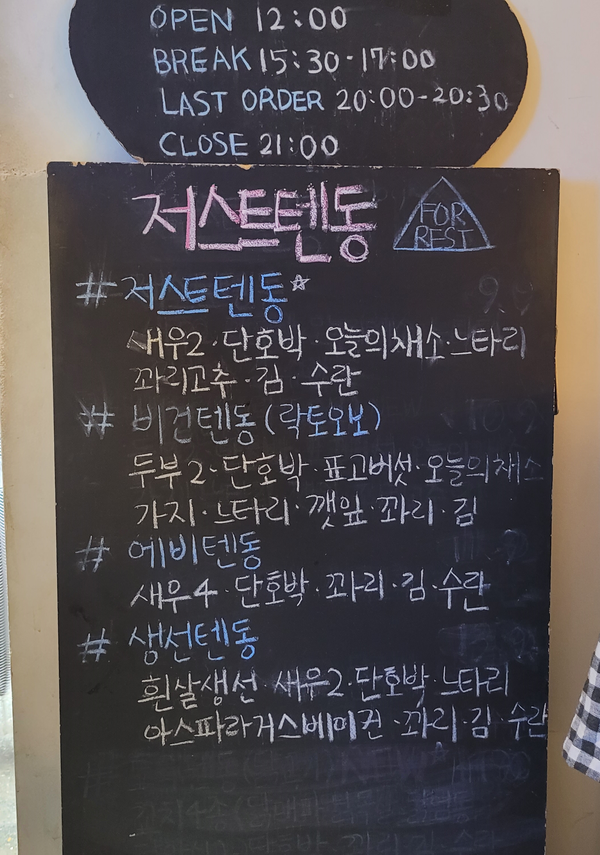 OPEN 12:00
BREAK 15:30-17:00
LAST ORDER 20:00-20:30
CLOSE 21:00
저스트텐동
FOR
REST
# 저스트텐동☆
새우2·단호박·오늘의채소·느타리
꽈리고추·김·수란
# 비건텐동(락토오보)
두부2·단호박·표고버섯·오늘의채소
가지·느타리·깻잎·꽈리·김
# 에비텐동
새우4·단호박·꽈리·김·수란
# 생선텐동
흰살생선·새우2·단호박·느타리
아스파라거스베이컨·꽈리·김·수란